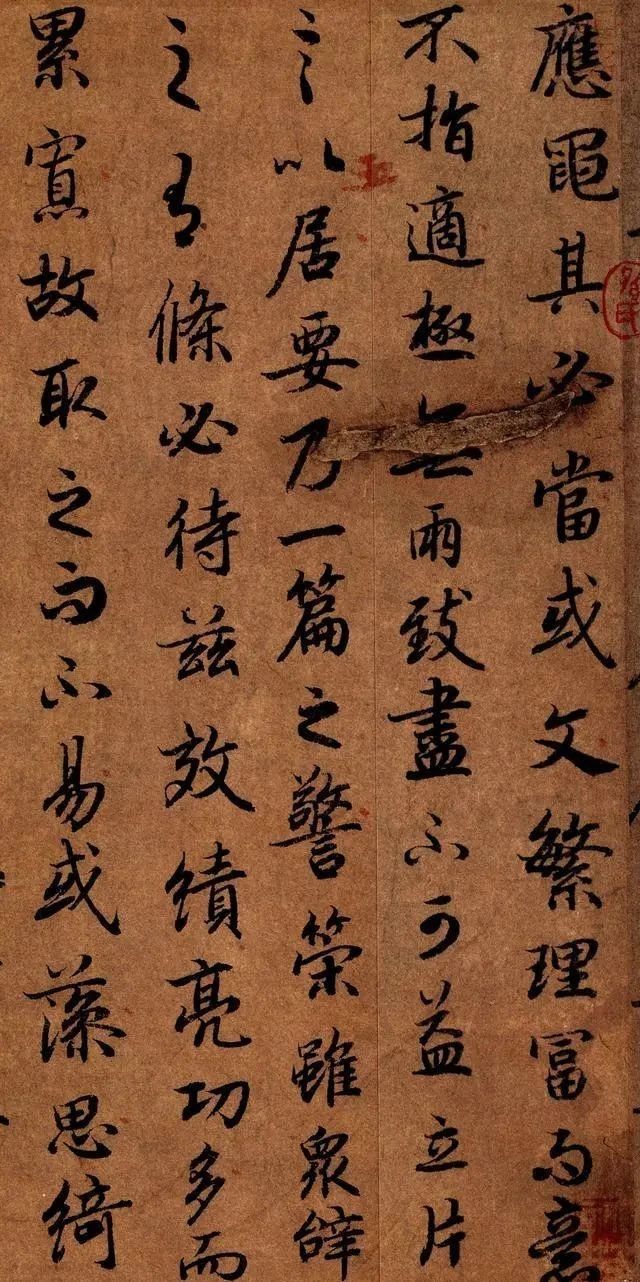 應黽其必當或文繁理富而意
不指適極無兩致盡不可益立片
言以居要乃一篇之警策雖衆辝
之有條必待茲效績亮功多而
累寡故取之而不易或藻思綺